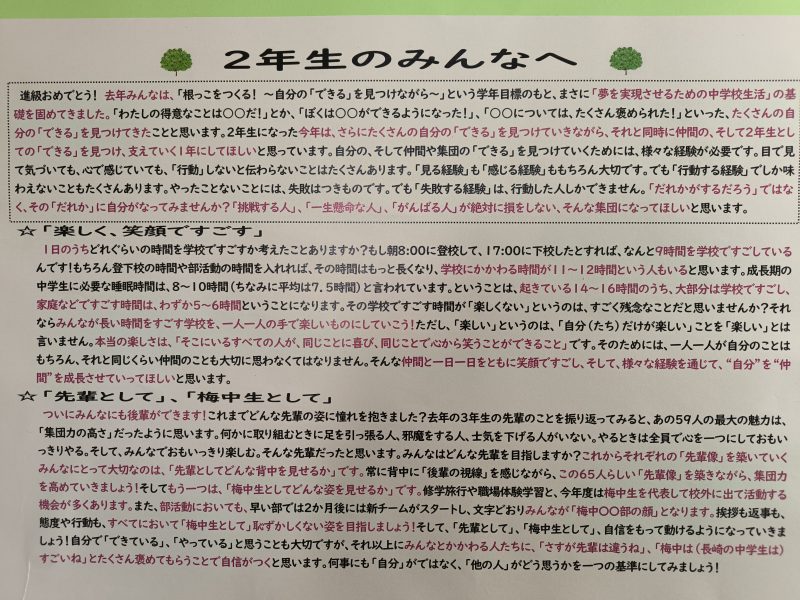 2年生のみんなへ
進級おめでとう! 去年みんなは、「根っこをつくる! ～自分の「できる」を見つけながら～」という学年目標のもと、まさに「夢を実現させるための中学校生活」の基
礎を固めてきました。「わたしの得意なことは○○だ!」とか、「ぼくは○○ができるようになった!」、「○○については、たくさん褒められた!」といった、たくさんの自
分の「できる」を見つけてきたことと思います。2年生になった今年は、さらにたくさんの自分の「できる」を見つけていきながら、それと同時に仲間の、そして2年生とし
ての「できる」を見つけ、支えていく1年にしてほしいと思っています。自分の、そして仲間や集団の「できる」を見つけていくためには、様々な経験が必要です。目で見
て気づいても、心で感じていても、「行動」しないと伝わらないことはたくさんあります。「見る経験」も「感じる経験」ももちろん大切です。でも「行動する経験」でしか味
わえないこともたくさんあります。やったことないことには、失敗はつきものです。でも「失敗する経験」は、行動した人しかできません。「だれかがするだろう」ではな
く、その「だれか」に自分がなってみませんか?「挑戦する人」、「一生懸命な人」、「がんばる人」が絶対に損をしない、そんな集団になってほしいと思います。
☆「楽しく、笑顔ですごす」
1日のうちどれぐらいの時間を学校ですごすか考えたことありますか?もし朝8:00に登校して、17:00に下校したとすれば、なんと9時間を学校ですごしている
んです!もちろん登下校の時間や部活動の時間を入れれば、その時間はもっと長くなり、学校にかかわる時間が11～12時間という人もいると思います。成長期の
中学生に必要な睡眠時間は、8～10時間(ちなみに平均は7.5時間)と言われています。ということは、起きている14～16時間のうち、大部分は学校ですごし、
家庭などですごす時間は、わずか5～6時間ということになります。その学校ですごす時間が「楽しくない」というのは、すごく残念なことだと思いませんか?それ
ならみんなが長い時間をすごす学校を、一人一人の手で楽しいものにしていこう!ただし、「楽しい」というのは、「自分(たち)だけが楽しい」ことを「楽しい」とは
言いません。本当の楽しさは、「そこにいるすべての人が、同じことに喜び、同じことで心から笑うことができること」です。そのためには、一人一人が自分のことは
もちろん、それと同じくらい仲間のことも大切に思わなくてはなりません。そんな仲間と一日一日をともに笑顔ですごし、そして、様々な経験を通じて、“自分”を“仲
間”を成長させていってほしいと思います。
☆「先輩として」、「梅中生として」
ついにみんなにも後輩ができます!これまでどんな先輩の姿に憧れを抱きました?去年の3年生の先輩のことを振り返ってみると、あの59人の最大の魅力は、
「集団力の高さ」だったように思います。何かに取り組むときに足を引っ張る人、邪魔をする人、士気を下げる人がいない。やるときは全員で心を一つにしておもい
っきりやる。そして、みんなでおもいっきり楽しむ。そんな先輩だったと思います。みんなはどんな先輩を目指しますか?これからそれぞれの「先輩像」を築いていく
みんなにとって大切なのは、「先輩としてどんな背中を見せるか」です。常に背中に「後輩の視線」を感じながら、この65人らしい「先輩像」を築きながら、集団力
を高めていきましょう!そしてもう一つは、「梅中生としてどんな姿を見せるか」です。修学旅行や職場体験学習と、今年度は梅中生を代表して校外に出て活動する
機会が多くあります。また、部活動においても、早い部では2か月後には新チームがスタートし、文字どおりみんなが「梅中○○部の顔」となります。挨拶も返事も、
態度や行動も、すべてにおいて「梅中生として」恥ずかしくない姿を目指しましょう!そして、「先輩として」、「梅中生として」、自信をもって動けるようになっていきま
しょう!自分で「できている」、「やっている」と思うことも大切ですが、それ以上にみんなとかかわる人たちに、「さすが先輩は違うね」、「梅中は(長崎の中学生は)
すごいね」とたくさん褒めてもらうことで自信がつくと思います。何事にも「自分」がではなく、「他の人」がどう思うかを一つの基準にしてみましょう!